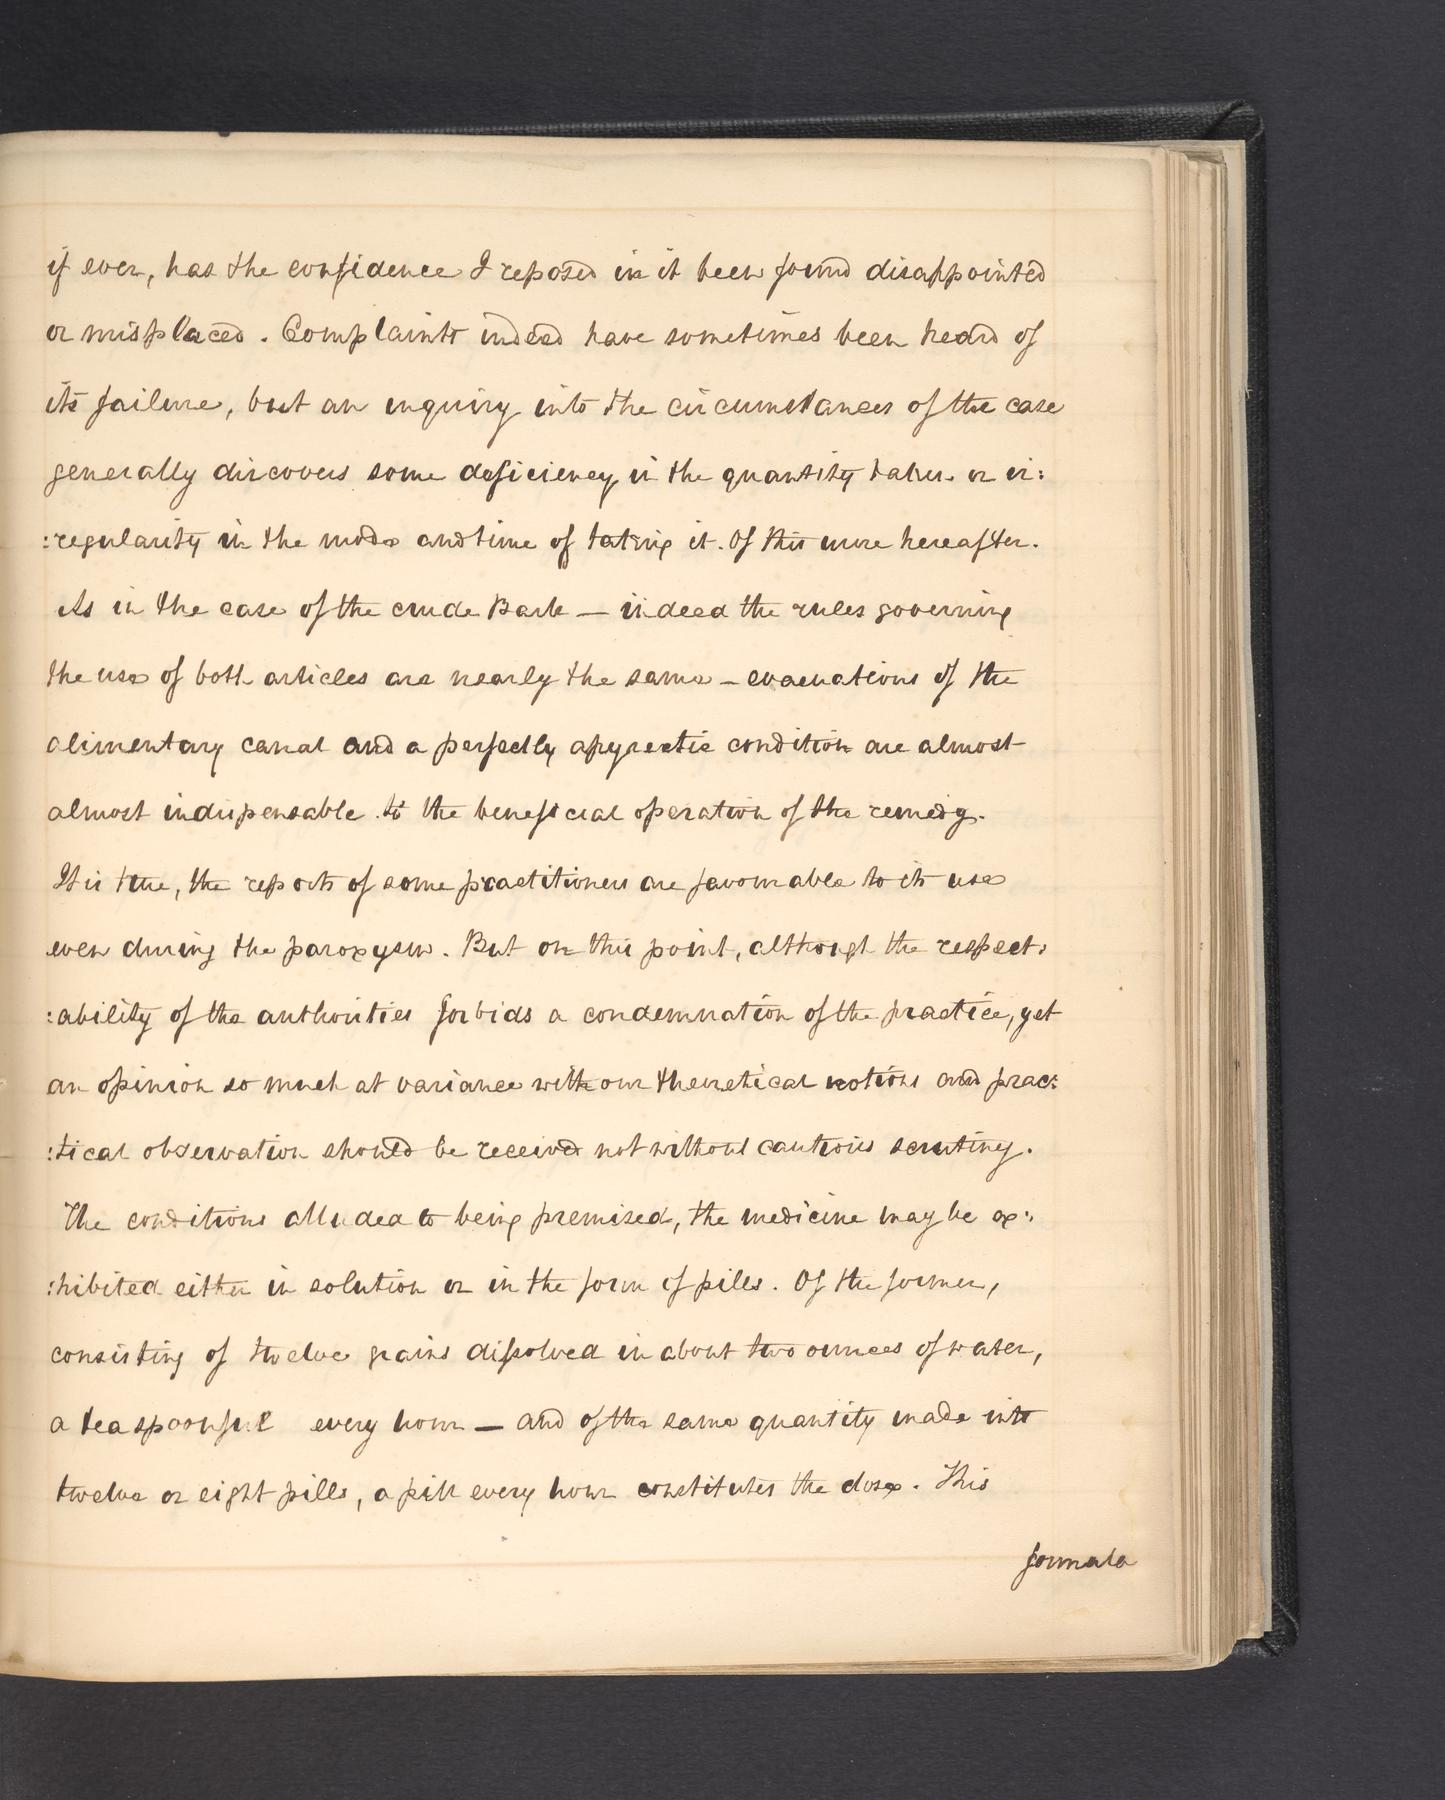 if ever, has the confidence I reposed in it been found disappointed
or misplaced. Complaints indeed have sometimes been heard of
its failure, but an inquiry into the circumstances of the case
generally discovers some deficiency in the quantity taken or ir:
:regularity in the mode and time of taking it. Of this more hereafter.
As in the case of the crude Bark — indeed the rules governing
the use of both articles are nearly the same — evacuations of the
alimentary canal and a perfectly apyrectic condition are almost
almost indispensable to the beneficial operation of the remedy.
It is true, the reports of some practitioners are favourable to its use
even during the paroxysm. But on this point, although the respect:
:ability of the authorities forbids a condemnation of the practice, yet
an opinion so much at variance with our theoretical notions and prac:
:tical observation should be received not without cautious scrutiny.
The conditions alluded to being premised, the medicine may be ex:
:hibited either in solution or in the form of pills. Of the former,
consisting of twelve grains dissolved in about two ounces of water,
a teaspoonful every hour — and of the same quantity made into
twelve or eight pills, a pill every hour constitutes the dose. This
formula